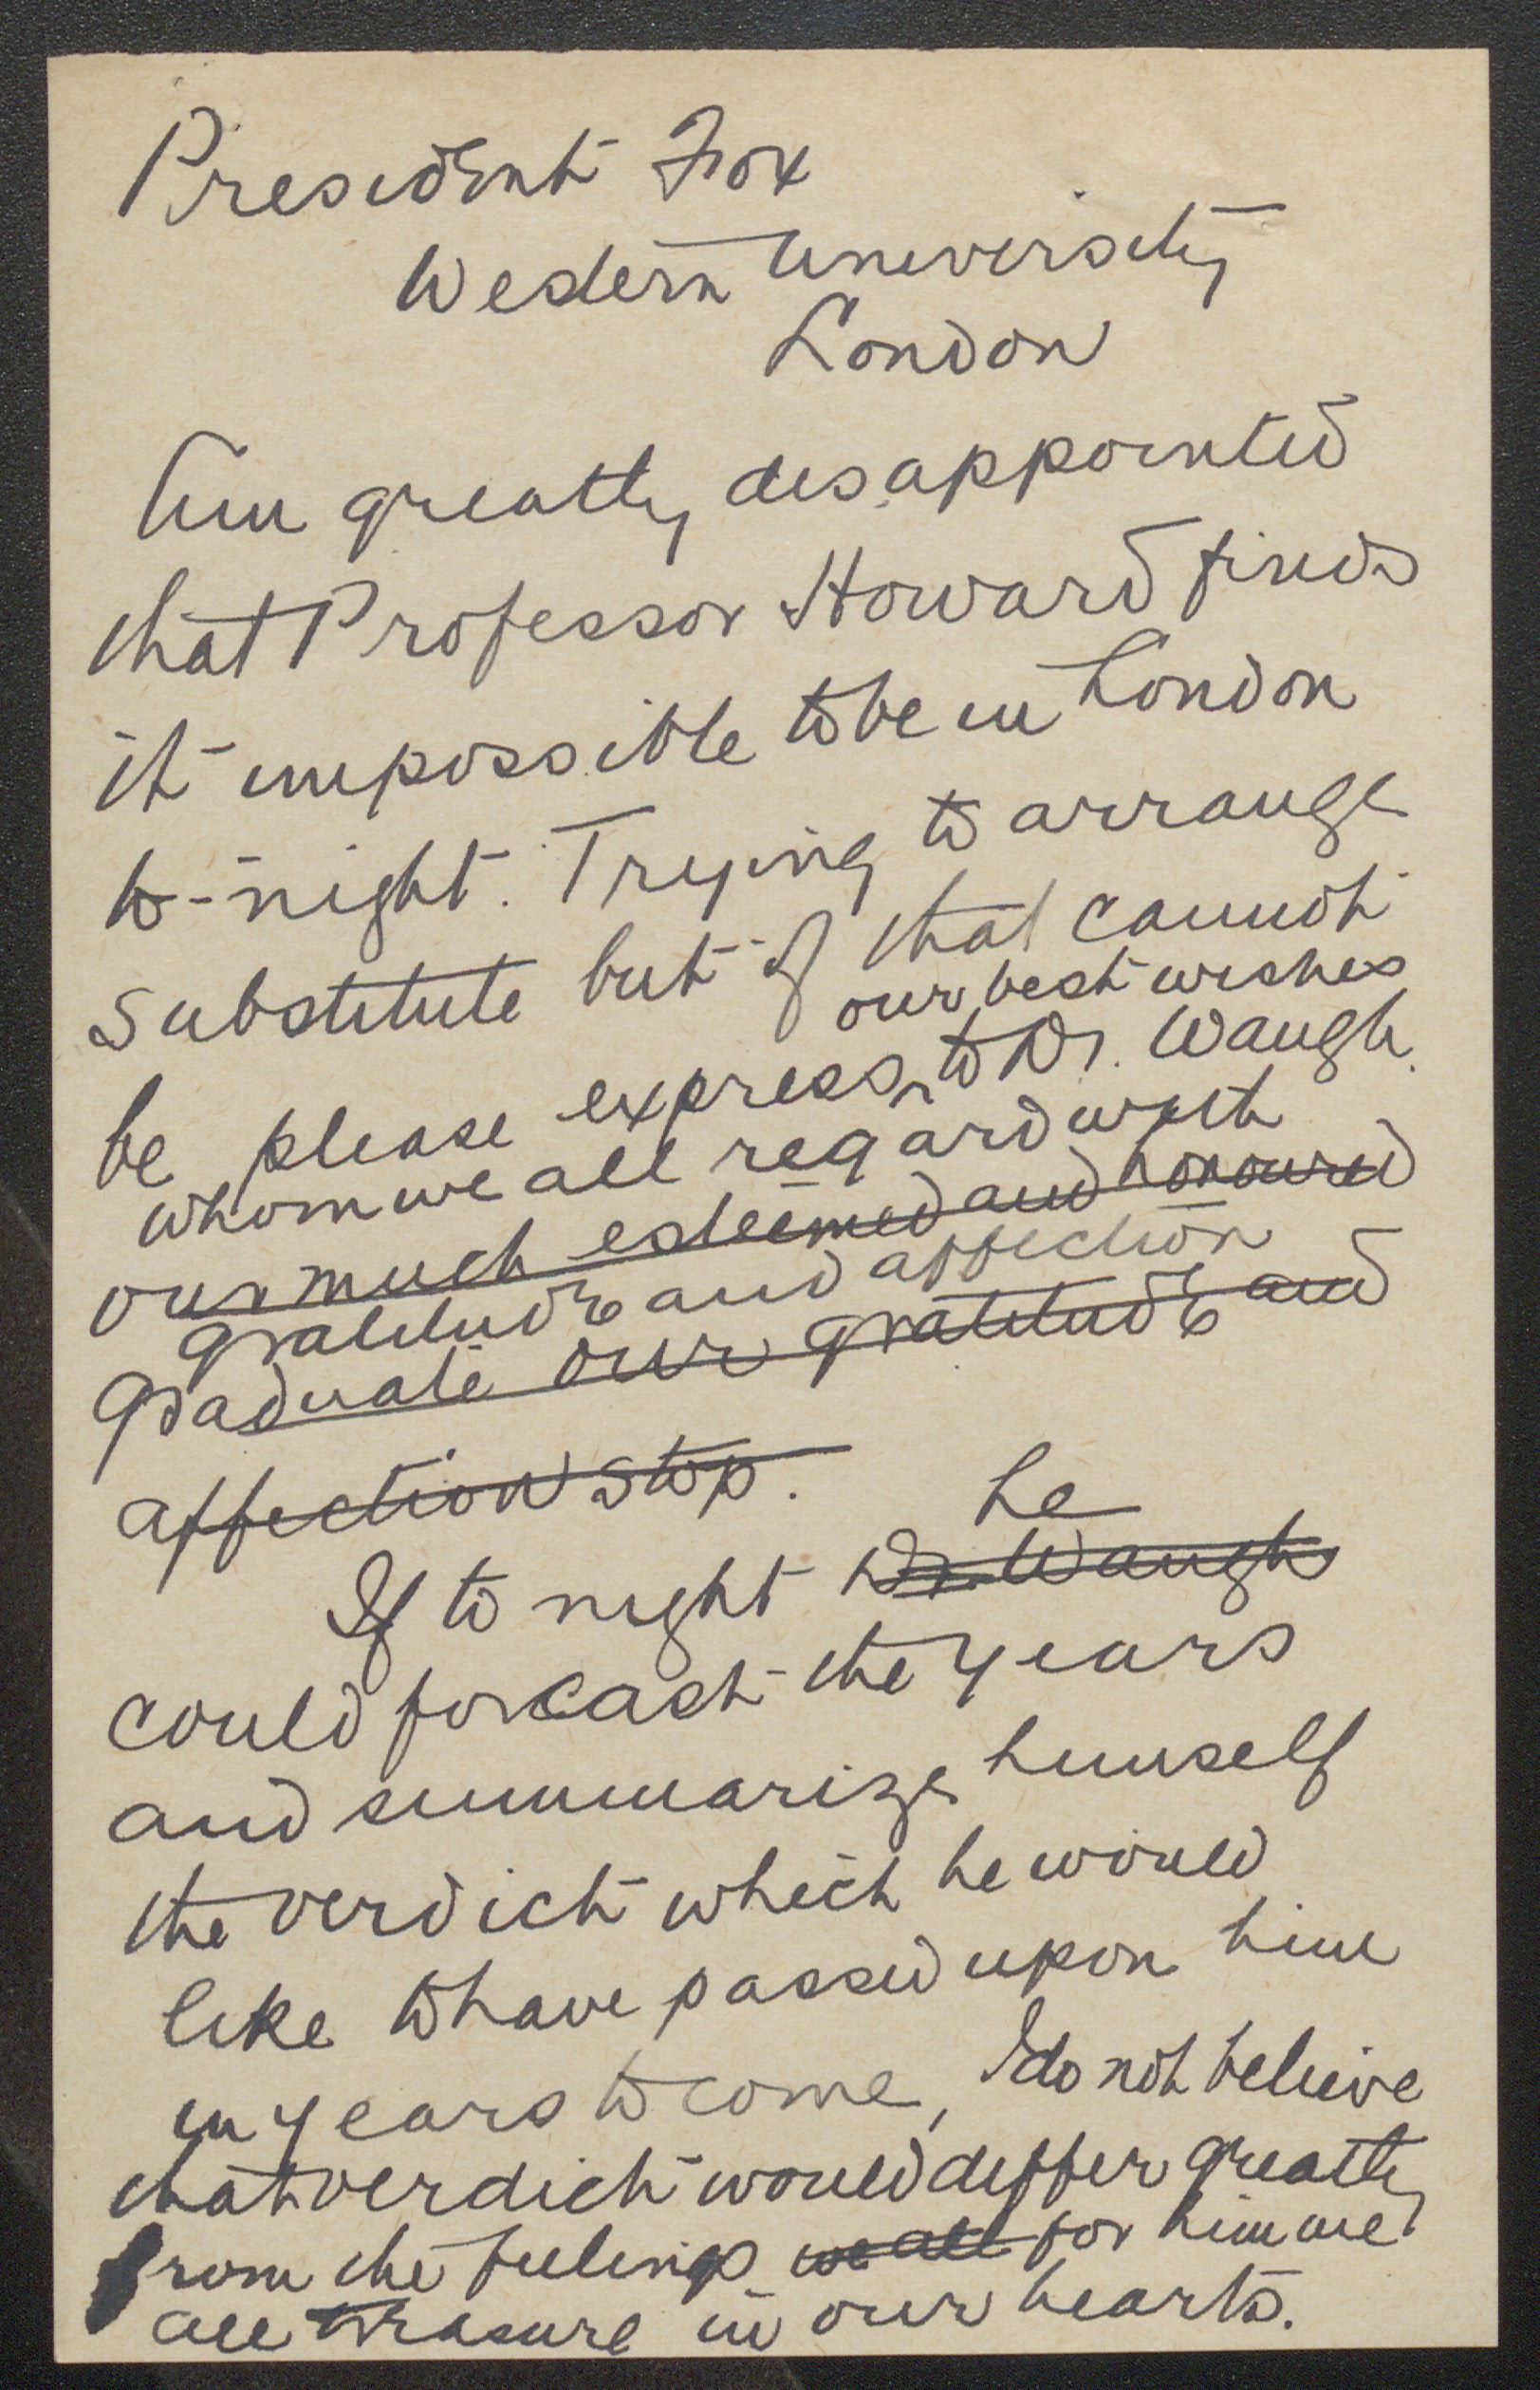 President Fox
Western University
London
Am greatly disappointed
that Professor Howard finds
it impossible to be in London
to-night. Trying to arrange
substitute but if that cannot
our best wishes
be please express ^ to Dr. Waugh.
whom we all regard with
our much esteemed and honoured
gratitude and affection
graduate our gratitude and
affection stop.
he
If to night Dr. Waugh
could forecast the years
and summarize himself
the verdict which he would
like to have passed upon him
in years to come, I do not believe
that verdict would differ greatly
from the feelings we all for him we
all treasure in our hearts.